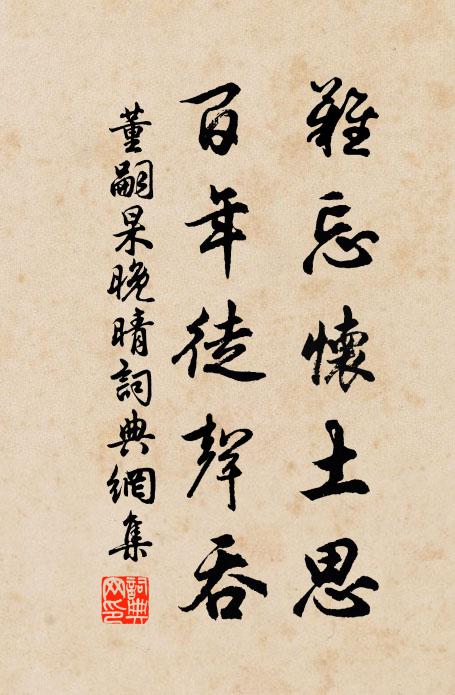 難忘懷土思
百年徒聲吞
董嗣杲晚晴詞典網集
詞典網印